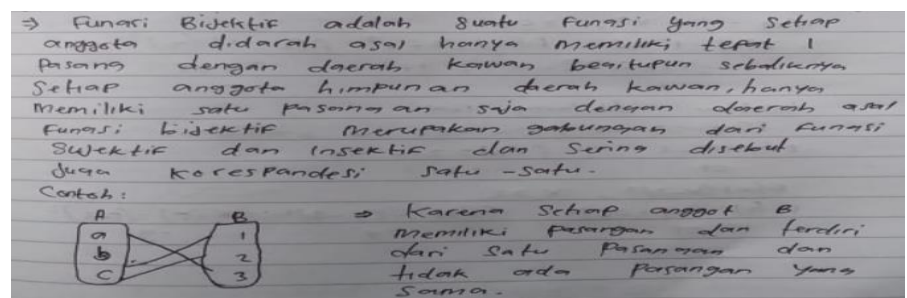 ⇒ Fungsi Bijektif adalah suatu fungsi yang setiap
anggota didarah asal hanya memiliki tepat 1
pasang dengan daerah kawan begitupun sebaliknya
Setiap anggota himpunan daerah kawan, hanya
memiliki satu pasangan saja dengan daerah asal
Fungsi bijektif merupakan gabungan dari fungsi
Surjektif dan Insektif dan Sering disebut
Juga Korespandesi satu-satu.
Contoh:
A B
a 1
b 2
c 3
⇒ Karena Setiap anggot B
memiliki pasangan dan terdiri
dari satu pasangan dan
tidak ada pasangan yang
sama.